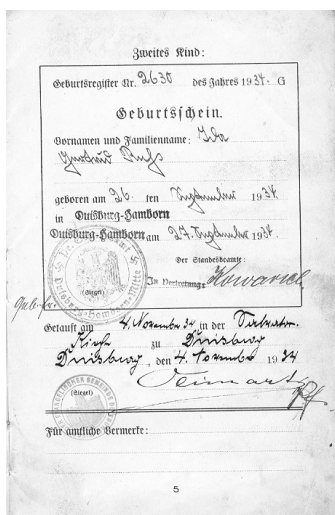 Zweites Kind:
Geburtsregister Nr. 2630 des Jahres 1934. G
Geburtsschein.
Vornamen und Familienname: Ida
Gertrud
geboren am 26. ten September 1934
in Duisburg-Hamborn
Duisburg-Hamborn am 27. September 1934.
Der Standesbeamte:
In Vertretung:
(Siegel)
Getauft am 4. November 34 in der
Kirche zu Duisburg
Duisburg, den 4. November 1934
(Siegel)
Für amtliche Vermerke:
5